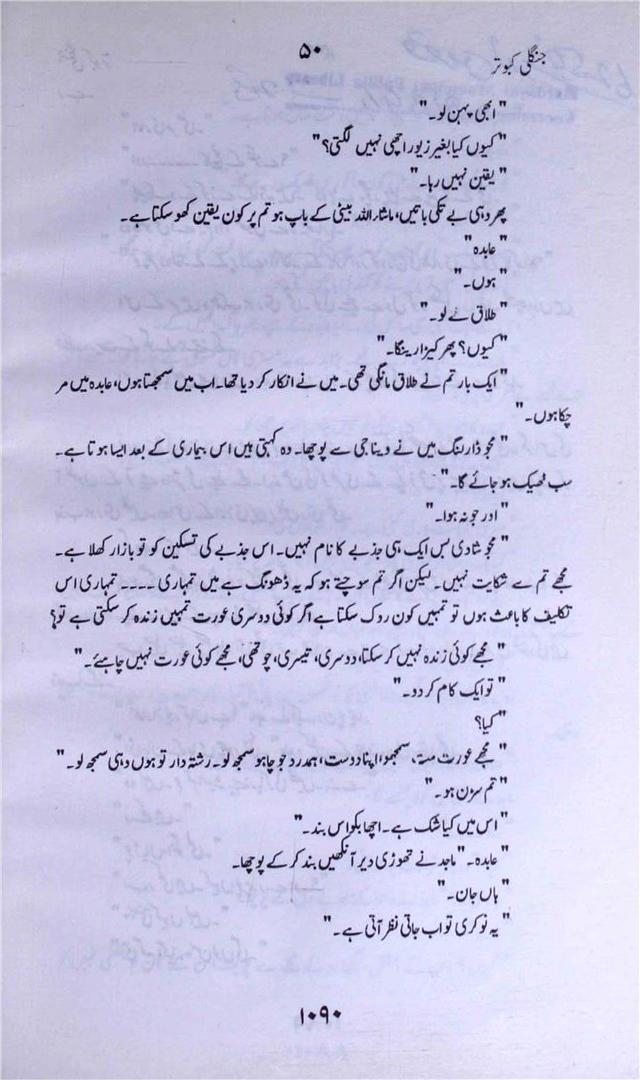 جنگلی کبوتر
۵۰
"ابھی پہن لو۔"
"کیوں کیا بغیر زیور اچھی نہیں لگتی؟"
"یقین نہیں رہا۔"
پھر وہی بے تکی باتیں، ماشاء اللہ بیٹی کے باپ ہو تم پر کون یقین کھو سکتا ہے۔
"عابدہ"
"ہوں۔"
"طلاق لے لو۔"
"کیوں؟ پھر کیڑا رینگا۔"
"ایک بار تم نے طلاق مانگی تھی۔ میں نے انکار کر دیا تھا۔ اب میں سمجھتا ہوں، عابدہ میں مر
چکا ہوں۔"
"مجو ڈارلنگ میں نے ویناجی سے پوچھا۔ وہ کہتی ہیں اس بیماری کے بعد ایسا ہوتا ہے۔
سب ٹھیک ہو جائے گا۔"
"اور جو نہ ہوا۔"
"مجو شادی بس ایک ہی جذبے کا نام نہیں۔ اس جذبے کی تسکین کو تو بازار کھلا ہے۔
مجھے تم سے شکایت نہیں۔ لیکن اگر تم سوچتے ہو کہ یہ ڈھونگ ہے میں تمہاری ۔۔۔۔ تمہاری اس
تکلیف کا باعث ہوں تو تمہیں کون روک سکتا ہے اگر کوئی دوسری عورت تمہیں زندہ کر سکتی ہے تو؟
"مجھے کوئی زندہ نہیں کر سکتا، دوسری، تیسری، چوتھی، مجھے کوئی عورت نہیں چاہئے۔"
"تو ایک کام کر دو۔"
"کیا؟
"مجھے عورت مت سمجھو، اپنا دوست، ہمدرد جو چاہو سمجھ لو۔ رشتہ دار تو ہوں وہی سمجھ لو۔"
"تم سزن ہو۔"
"اس میں کیا شک ہے۔ اچھا بکواس بند۔"
"عابدہ۔" ماجد نے تھوڑی دیر آنکھیں بند کر کے پوچھا۔
"ہاں جان۔"
"یہ نوکری تو اب جاتی نظر آتی ہے۔"
۱۰۹۰